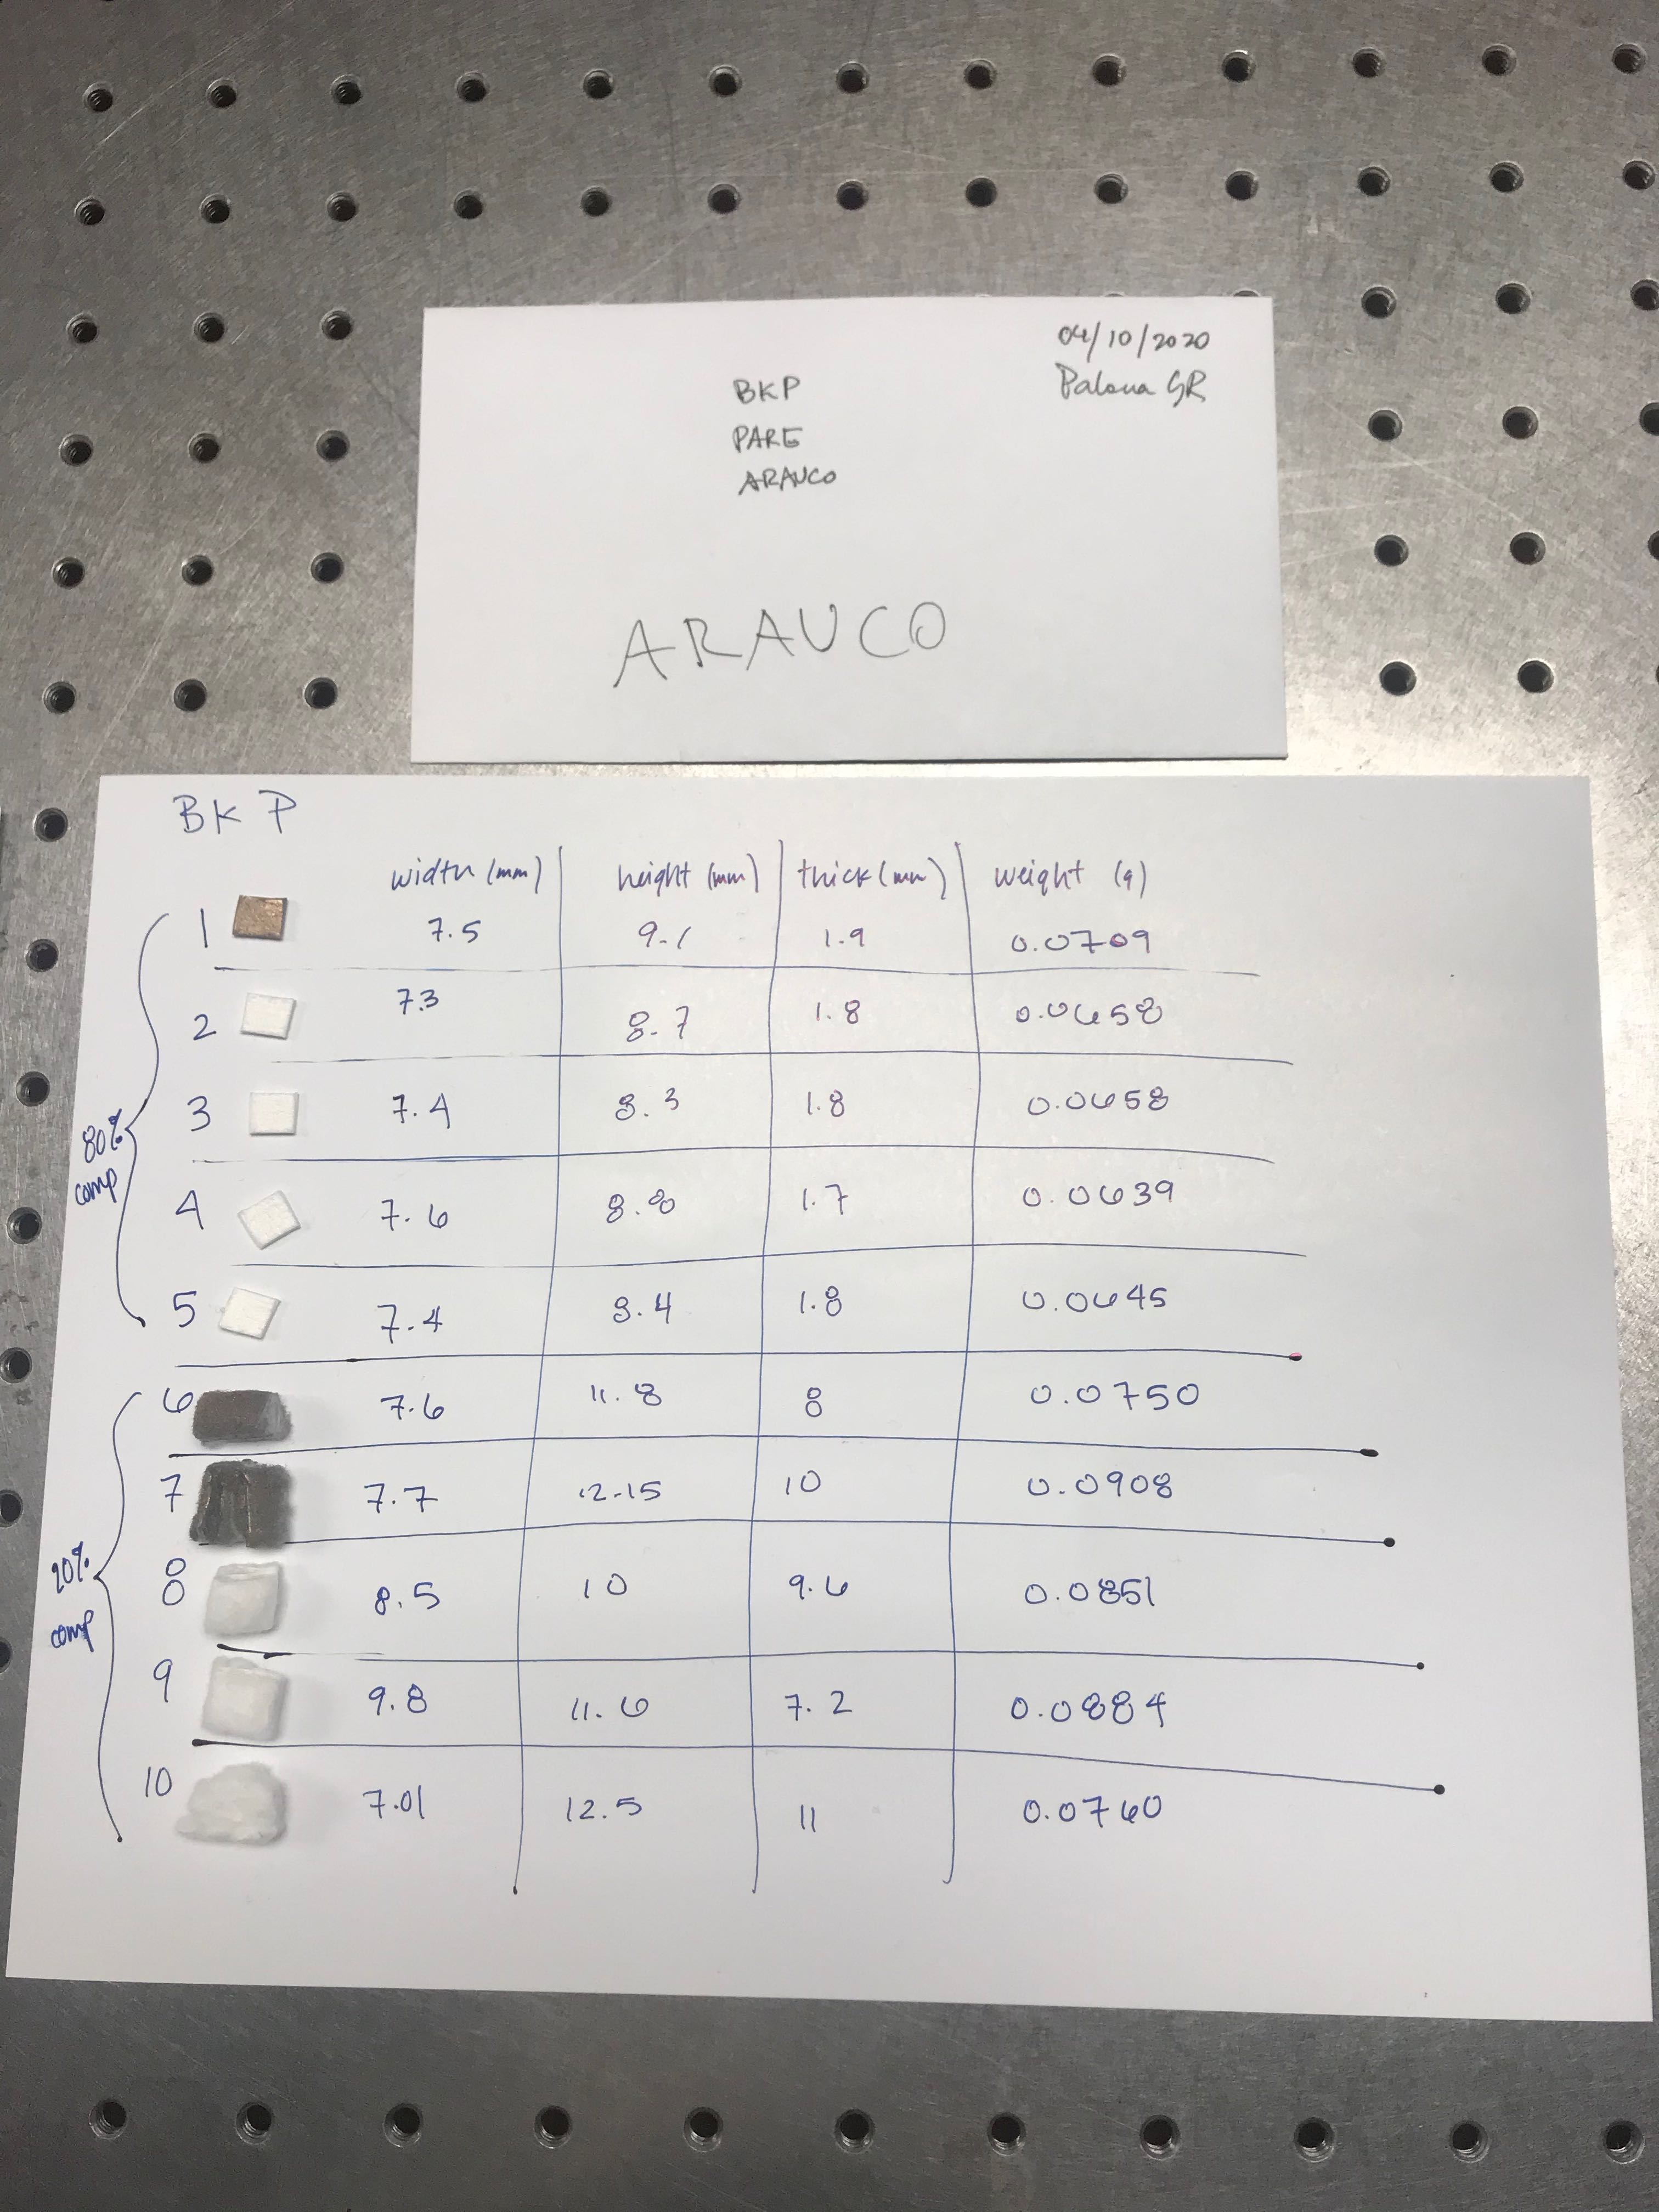 04/10/2020
Paloma GR
BKP
PARE
ARAUCO
ARAUCO
BKP
width (mm) height (mm) thick (mm) weight (g)
1 7.5 9.1 1.9 0.0709
2 7.3 8.7 1.8 0.0658
3 7.4 8.3 1.8 0.0658
80% comp
4 7.6 8.8 1.7 0.0639
5 7.4 8.4 1.8 0.0645
6 7.6 11.8 8 0.0750
7 7.7 12.15 10 0.0908
8 8.5 10 9.6 0.0851
20% comp
9 9.8 11.6 7.2 0.0884
10 7.01 12.5 11 0.0760